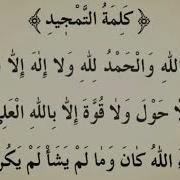 ﴿ كَلِمَةُ التَّمْجِيدِ ﴾
اللهِ وَالْحَمْدُ لِلهِ وَلَا إِلٰهَ إِلَّا
حَوْلَ وَلَا قُوَّةَ إِلَّا بِاللهِ الْعَلِيِّ
اللهُ كَانَ وَمَا لَمْ يَشَأْ لَمْ يَكُنْ